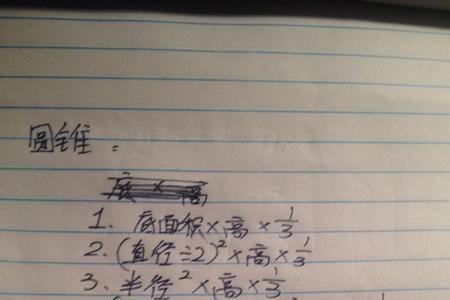 圆锥：
底×高
1. 底面积×高×1/3
2. (直径÷2)²×高×1/3
3. 半径²×高×1/3